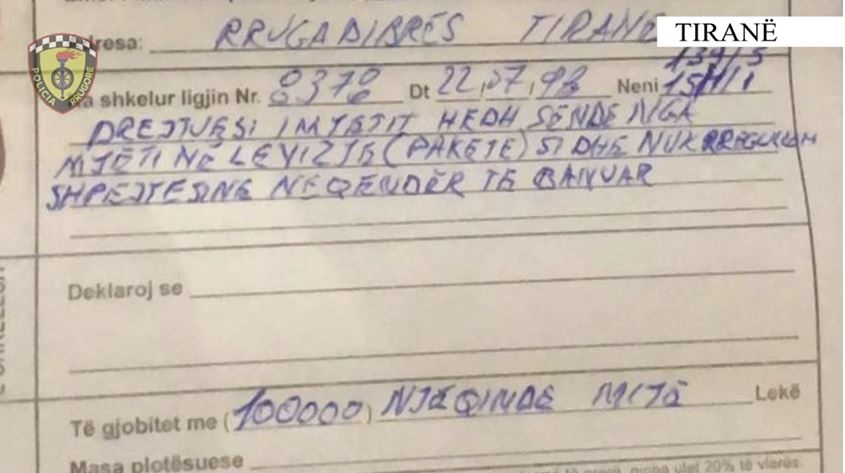 TIRANË
POLICIA RRUGORE
dresa: RRUGA DIBRËS TIRANË
139/5
a shkelur ligjin Nr. 8378 Dt 22,07,98 Neni 151/1
DREJTUESI I MJETIT HEDH SENDE NGA
MJETI NË LEVIZJE (PAKETE) SI DHE NUK RREGULLON
SHPEJTESINE NEQENDËR TË BANUAR
Deklaroj se
Të gjobitet me (100000) NJËQINDE MIJË Lekë
Masa plotësuese
ulet 20% të vlerës.